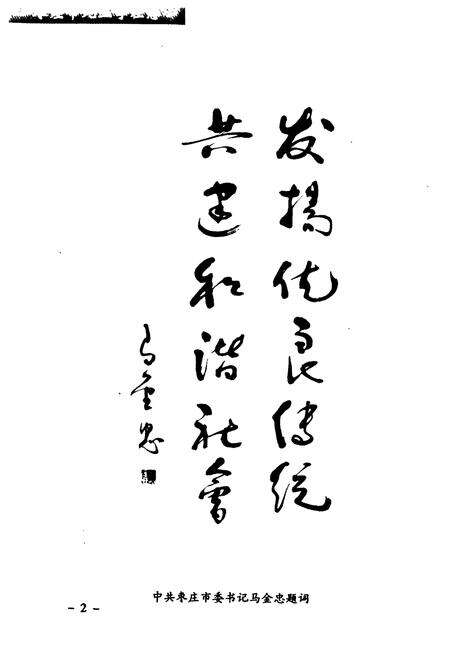 发揚优良传统
共建和谐社會
马金忠
中共枣庄市委书记马金忠题词
- 2 -